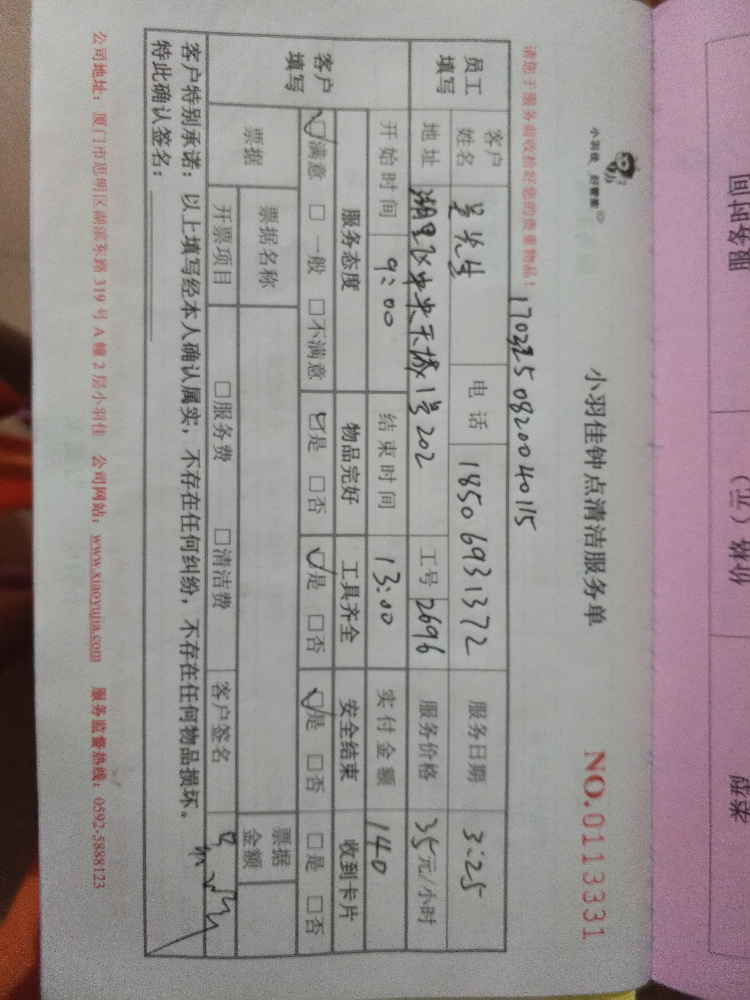 小羽佳 好管家
小羽佳钟点清洁服务单
NO.0113331
请您于服务前收拾好您的贵重物品！
170325082004015
员工填写
客户姓名 吴先生 电话 18506931372 服务日期 3:25
地址 湖里区中央天城1号202 工号 2696 服务价格 35元/小时
开始时间 9:00 结束时间 13:00 实付金额 140
客户填写
服务态度 物品完好 工具齐全 安全结束 收到卡片
☑满意 □一般 □不满意 ☑是 □否 ☑是 □否 ☑是 □否 □是 □否
票据 票据名称 票据金额
开票项目 □服务费 □清洁费 客户签名
客户特别承诺：以上填写经本人确认属实，不存在任何纠纷，不存在任何物品损坏。
特此确认签名：
公司地址：厦门市思明区湖滨东路 319 号 A 幢 2 层小羽佳 公司网站：www.xiaoyujia.com 服务监督热线：0592-5888123
服务时间
价格（元）